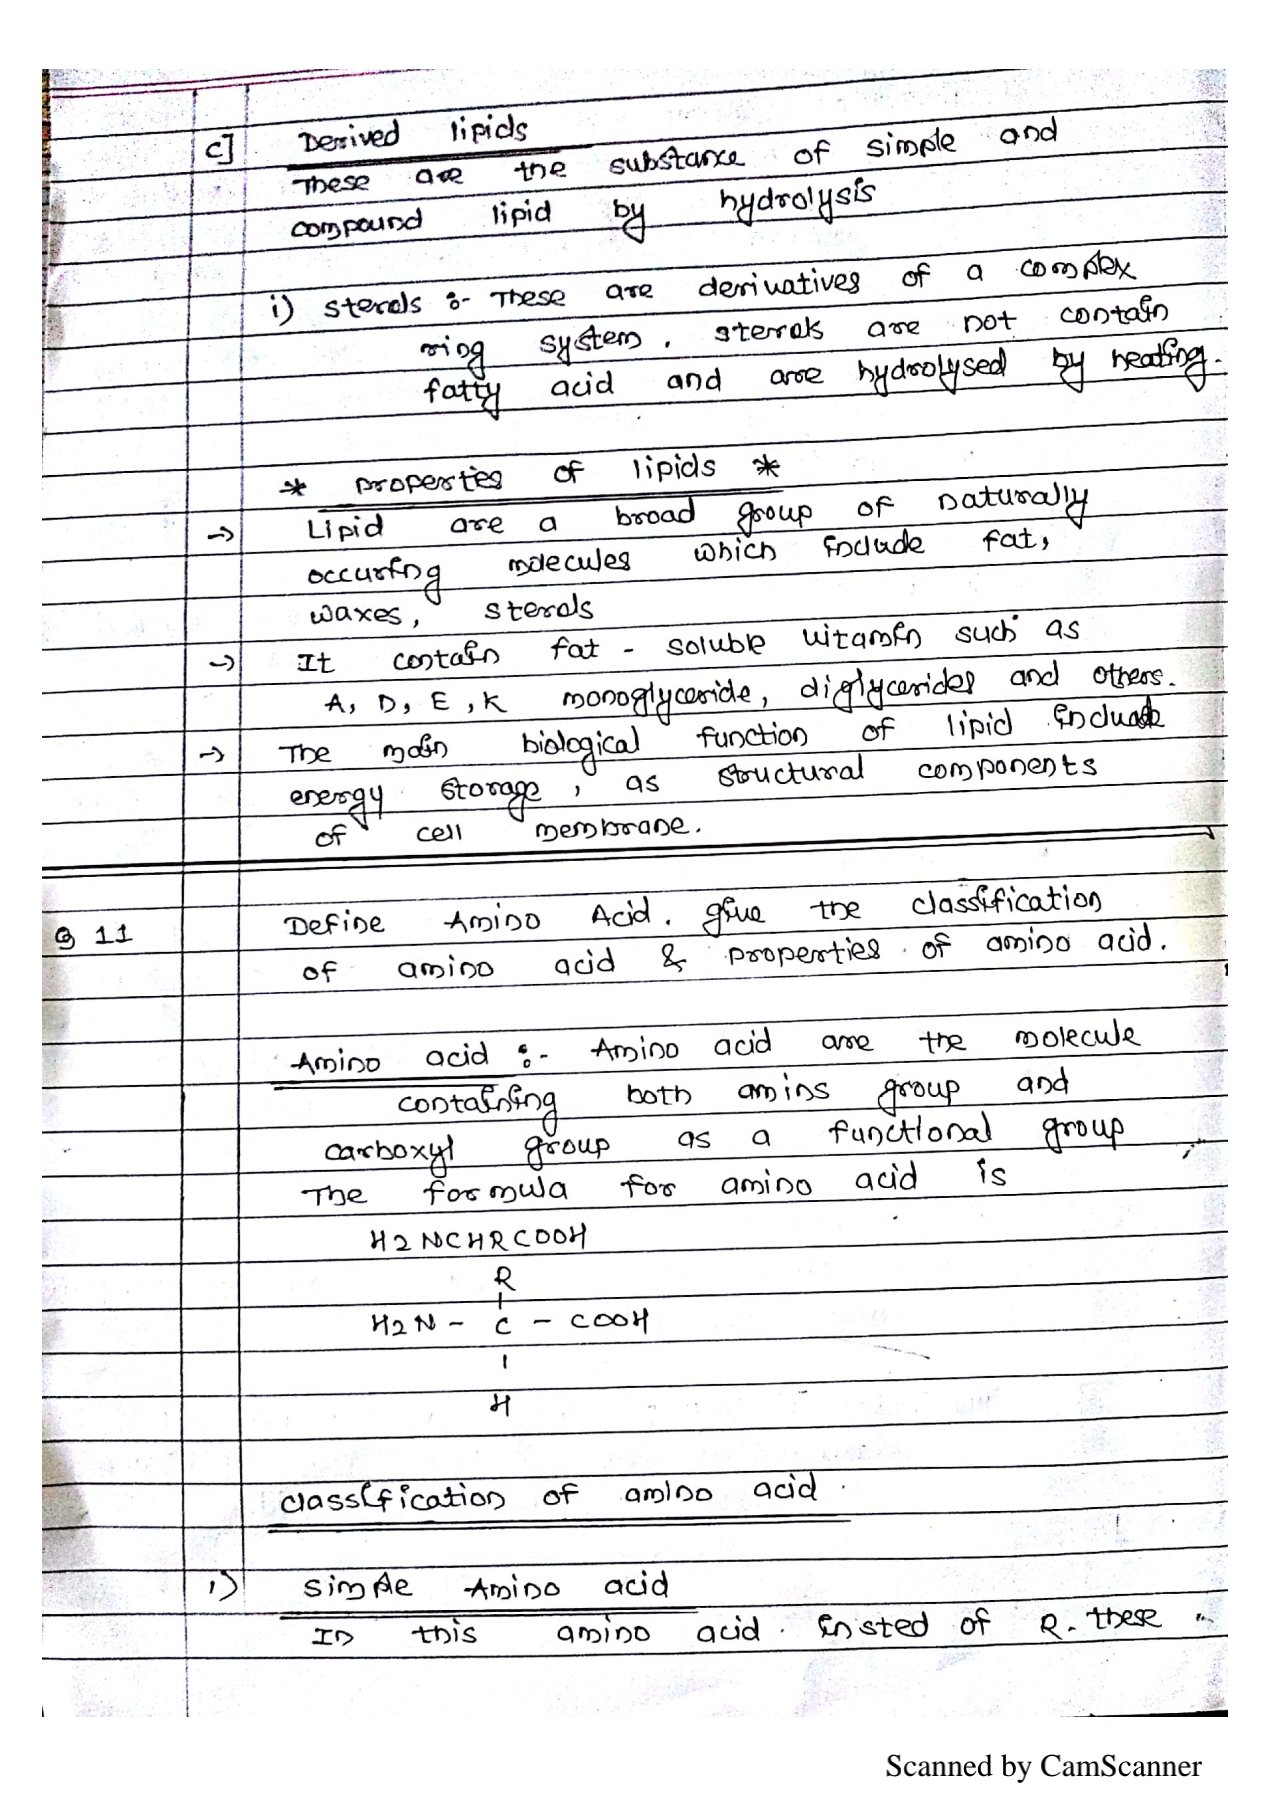 c] Derived lipids
These are the substance of simple and
compound lipid by hydrolysis
i) sterols :- These are derivatives of a complex
ring system. sterols are not contain
fatty acid and are hydrolysed by heating.
* properties of lipids *
→ Lipid are a broad group of naturally
occuring molecules which include fat,
waxes, sterols
→ It contain fat - soluble vitamin such as
A, D, E, K monoglyceride, diglycerides and others.
→ The main biological function of lipid include
energy storage, as structural components
of cell membrane.
Q 11 Define Amino Acid. give the classification
of amino acid & properties of amino acid.
Amino acid :- Amino acid are the molecule
containing both amins group and
carboxyl group as a functional group
The formula for amino acid is
H2NCHRCOOH
R
|
H2N - C - COOH
|
H
classification of amino acid.
1) simple Amino acid
In this amino acid insted of R. these
Scanned by CamScanner